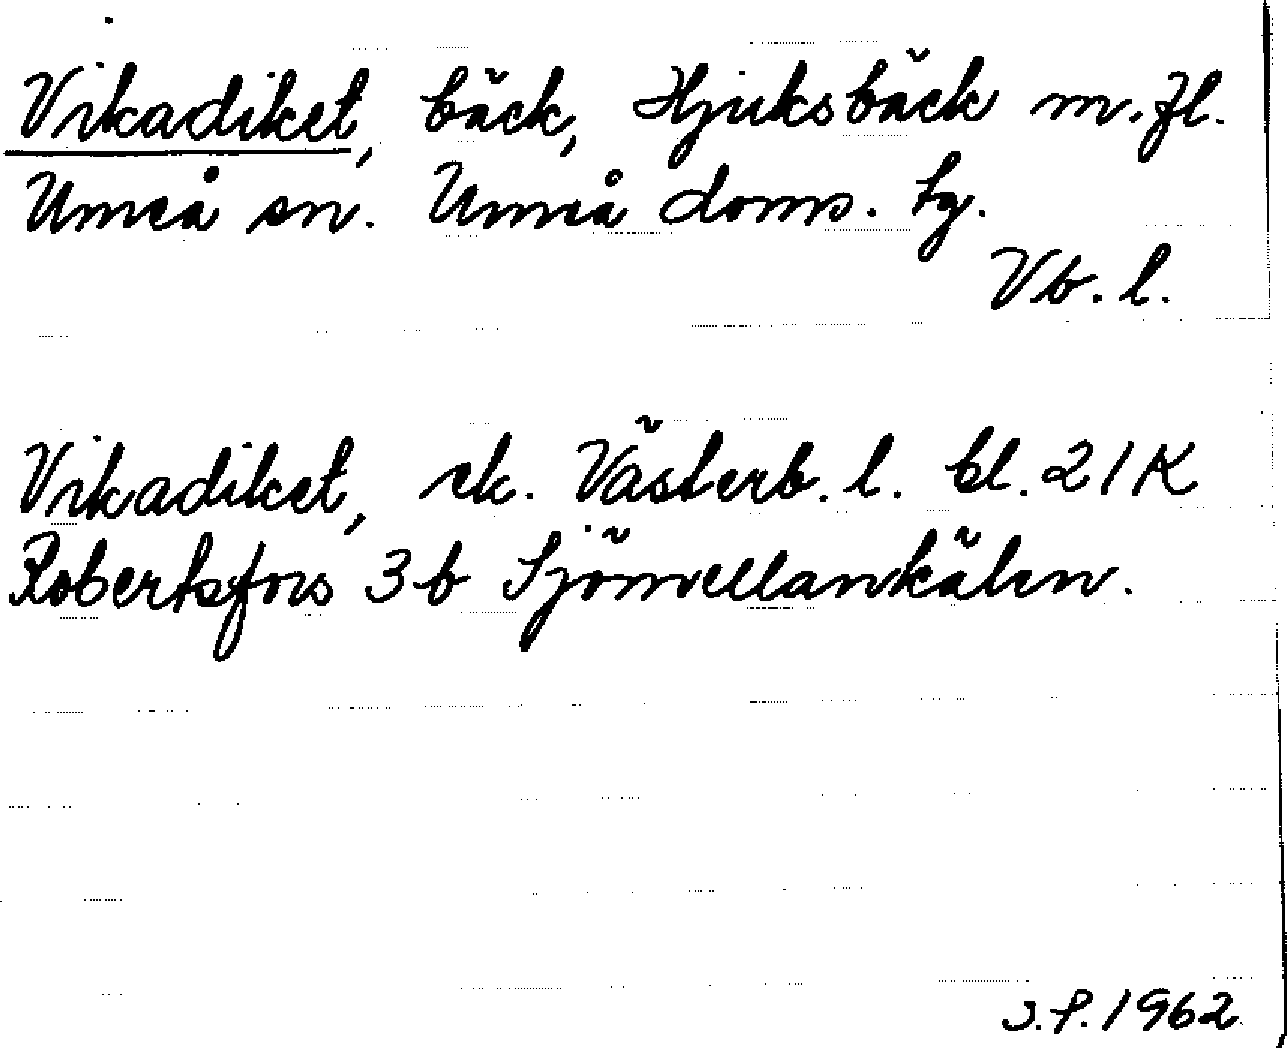 Vikadiket, bäck, Hjuksbäck m.fl.
Umeå sn. Umeå doms. tg.
Vb. l.
Vikadiket, ek. Västerb. l. bl. 21K
Robertsfors 3 b Sjömellankälen.
S.P. 1962